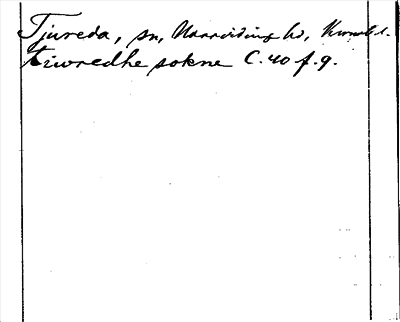 Tjureda, sn, Norrvidinge hd, Kronob. l.
tiwredhe sokne C. 40 f. 9.